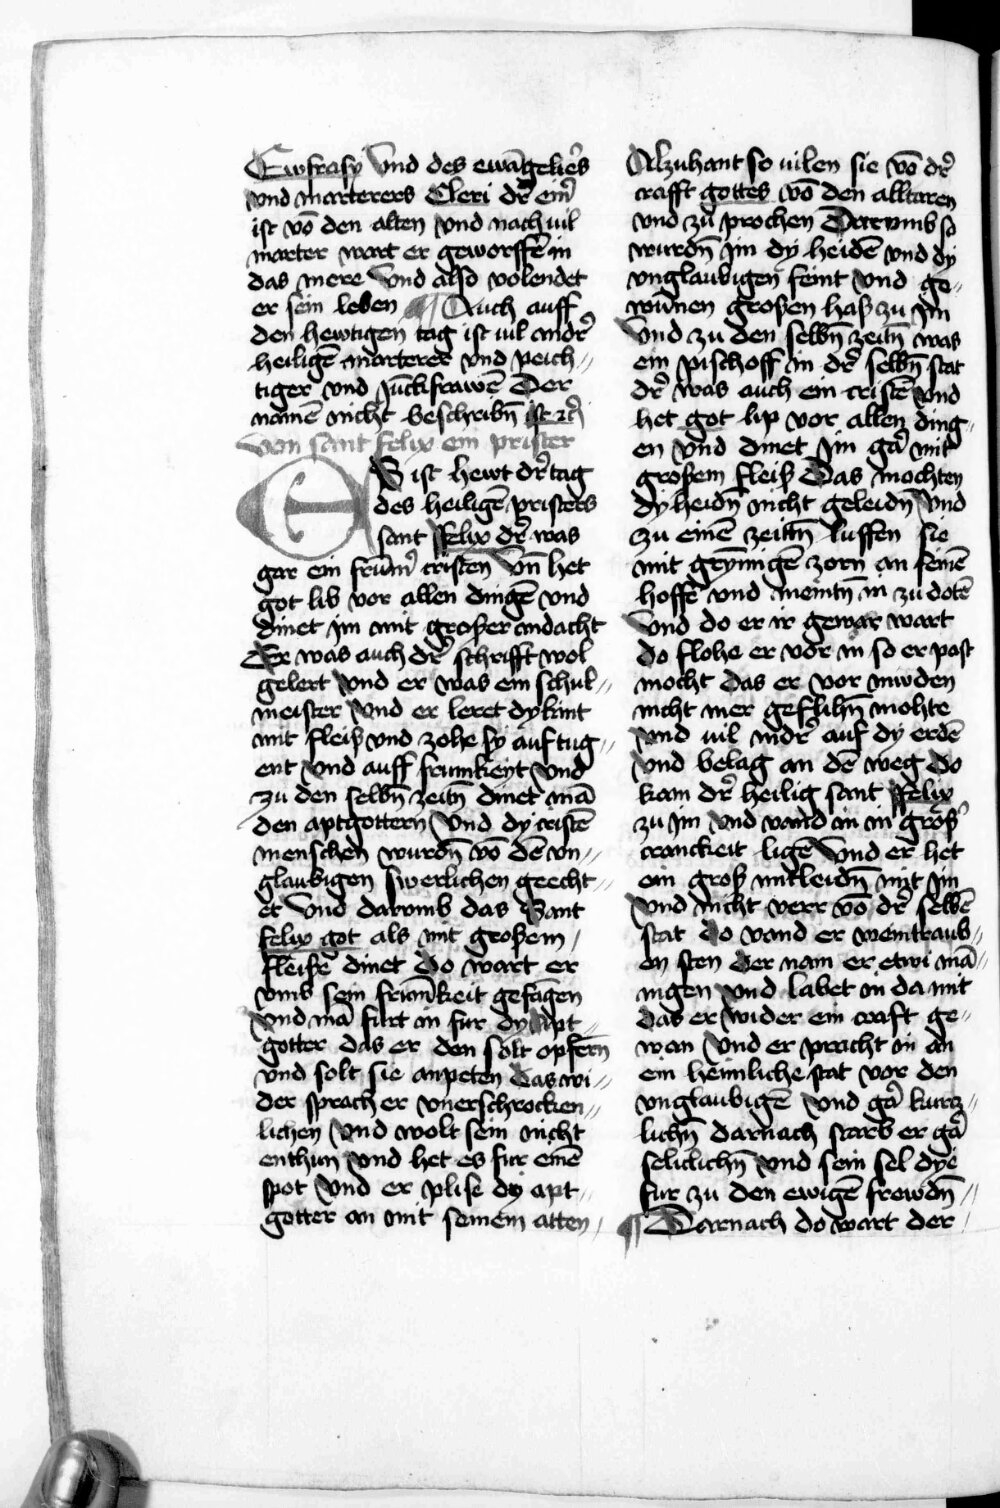 Ewfrasy Vnd des ewāgelieʳs
vnd marterers Cleri drͤ eинͤ
ist vō den alten vnd nach vil
marter wart er geworffē in
das mere Vnd also volendet
er sein leben ¶ Auch auff
den hewtigen tag ist vil andrͤ
heiligē marterer vnd peich⸗
tiger vnd Juckfrawē Der
namē nicht beschribn̄ ist ꝛcͨ
Von sant felix ein prister
ES ist hewt drͤ tag
des heiligē pristers
sant Felix drͤ was
gar ein frūmͤ cristen Vn̄ het
got lib vor allen dingē vnd
dinet im mit großer andacht
Er was auch drͤ schrifft wol
gelert Vnd er was ein schul⸗
meister Vnd er leret dy kint
mit fleiß vnd zohe sy auf tug⸗
ent Vnd auff frumkeyt Vnd
zu den selbn̄ zeitn̄ dinet mā
den aptgottern Vnd dy cristē
menschen wurdn̄ vō dē vn⸗
glaubigen swerlichen geecht⸗
et Vnd darvmb das Sant
felix got als mit großem
fleiße dinet Do wart er
vmb sein frūmkeit gefāgen
Vnd mā furt in fur dy Apt⸗
gotter das er den solt opfern
vnd solt sie anpeten Das wi⸗
der sprach er vnerschrocken⸗
lichen Vnd wolt sein nicht
enthun Vnd het es fur einē
spot Vnd er plise dy apt⸗
gotter an mit seinem atten
Alzuhant so vilen sie vō drͤ
crafft gottes vō den alltaren
vnd zu prochen Darvmb so
wurdn̄ im dy heidē vnd dy
vnglaubigen feint Vnd ge⸗
wūnen großen haß zu im
Vnd zu den selbn̄ zeitn̄ was
ein pischoff in drͤ selbn̄ stat
drͤ was auch ein cristē Vnd
het got lip vor allen ding⸗
en vnd dinet im gaͬ mit
großem fleiß Das mochten
dy heidn̄ nicht geleidn̄ Vnd
zu einē zeittn̄ luffen sie
mit grȳmigē zorn an seinē
hoffe vnd meintn̄ in zu dotē
Vnd do er ir gewar wart
do flohe er vor in so er past
mocht Das er vor muden
nicht mer geflihn̄ mohte
Vnd vil nidrͤ auf dy erdē
Vnd belag an dē weg Do
kam drͤ heilig sant Felix
zu im Vnd vand in in großͬ
cranckeit ligē Vnd er het
ein groß mitleidn̄ mit im
Vnd nicht verr vō drͤ selbē
stat Do vand er weintraub⸗
en sten Der nam er etwi mā⸗
nigen Vnd labet in da mit
Das er wider ein craft ge⸗
wan Vnd er pracht in an
ein heimliche stat vor den
vnglaubigē Vnd gaͬ kurcz⸗
lichn̄ darnach starb er gaͬ
seliclichn̄ Vnd sein sel dye
fur zu den ewigē frewdn̄
¶ Darnach do wart der